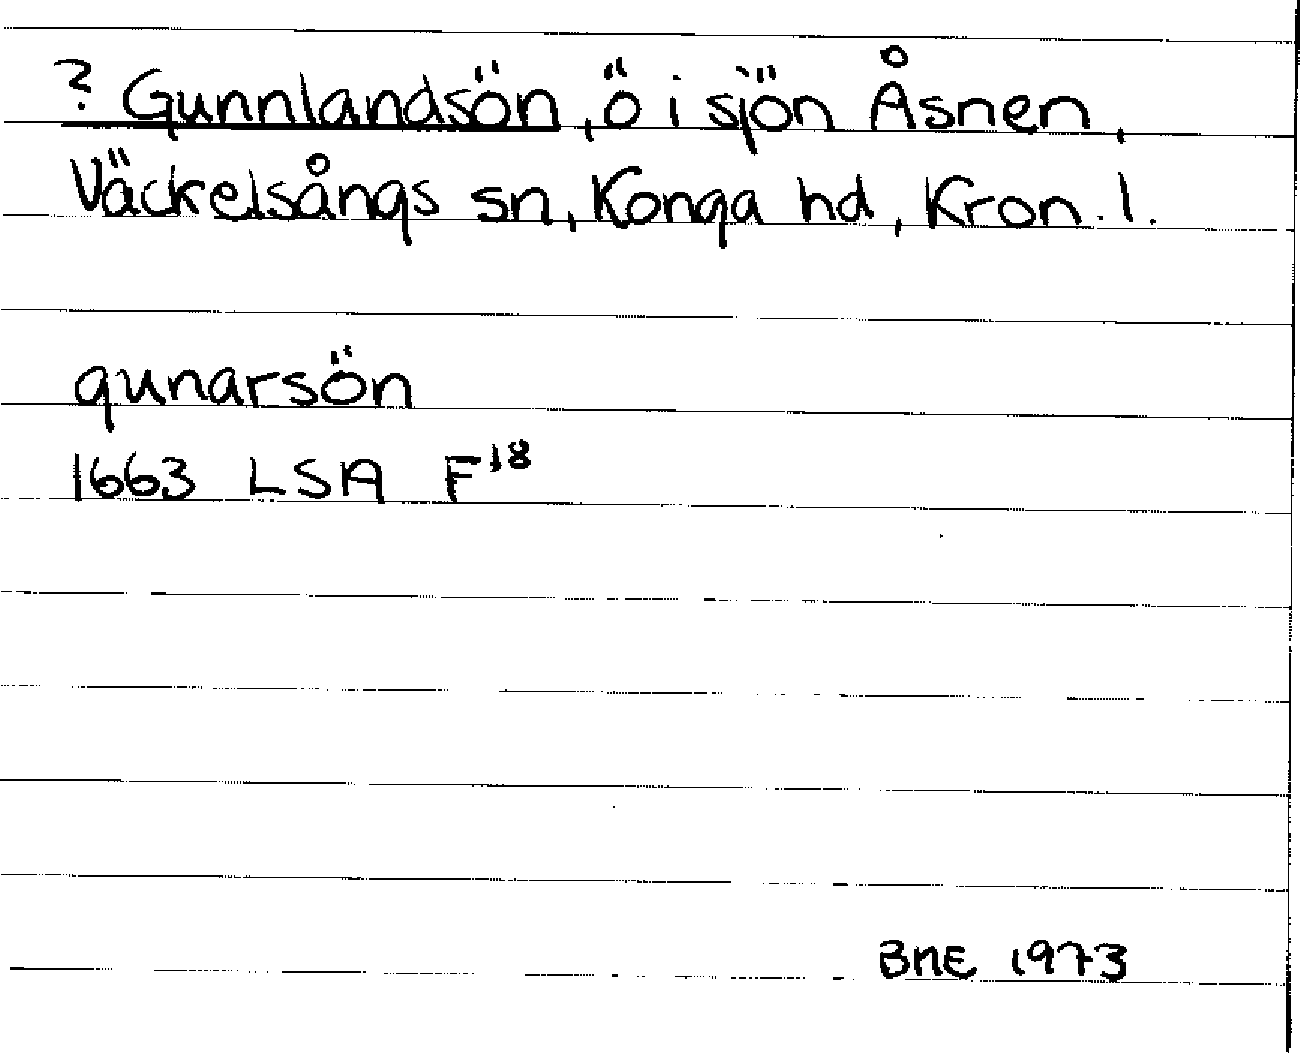 ? Gunnlandsön, ö i sjön Åsnen,
Väckelsångs sn, Konga hd, Kron. l.
gunarsön
1663 LSA F18
BNE 1973